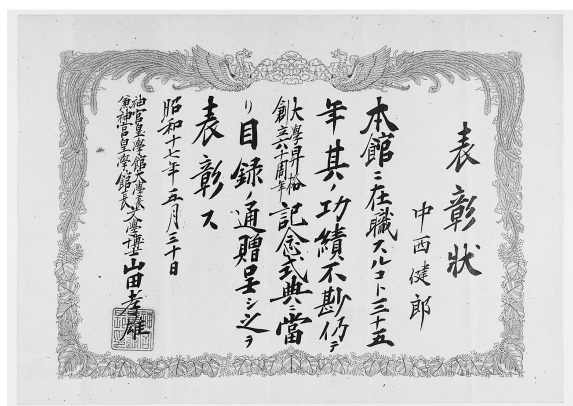 表彰状
中西健郎
本館ニ在職スルコト三十五
年其ノ功績不尠仍テ
大學昇格
創立六十周年
記念式典ニ當
リ目録ノ通贈呈シ之ヲ
表彰ス
昭和十七年五月三十日
神宮皇學館大學長
兼神宮皇學館長
文學博士山田孝雄